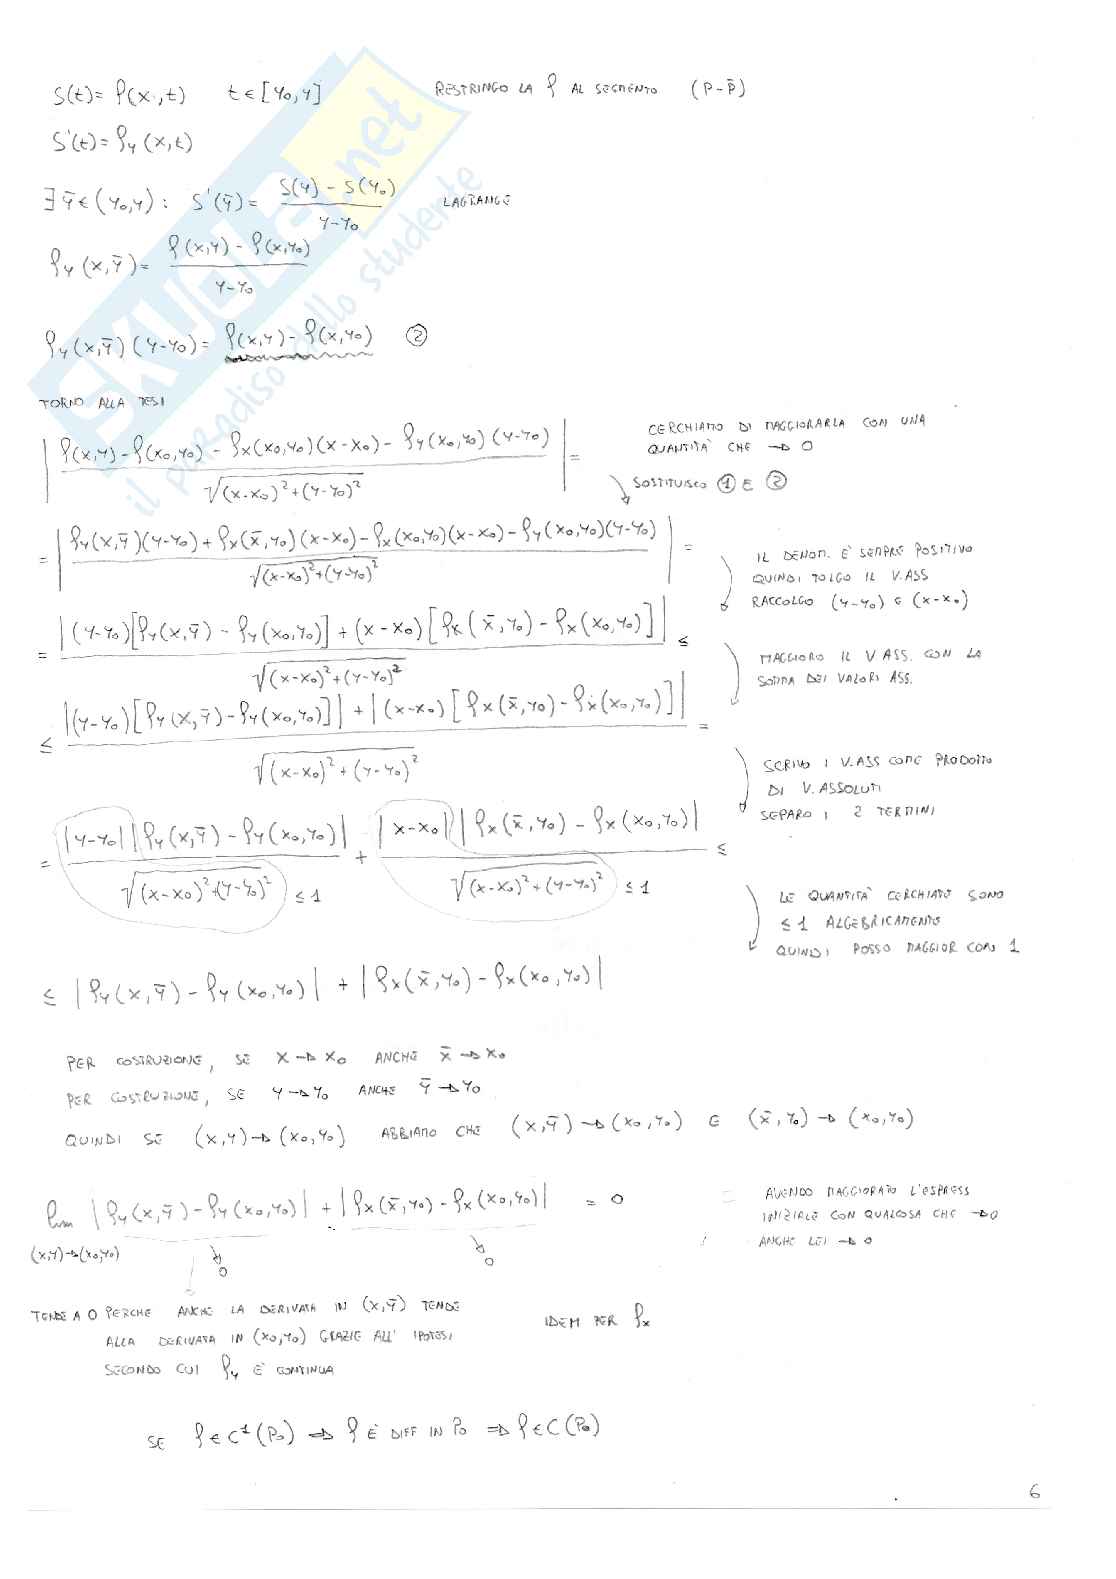 S(t) = f(x, t)   t ∈ [y0, y]   RESTRINGO LA f AL SEGMENTO (P-P̄)
S'(t) = fy (x, t)
∃ ȳ ∈ (y0, y) : S'(ȳ) = (S(y) - S(y0)) / (y - y0)   LAGRANGE
fy (x, ȳ) = (f(x,y) - f(x,y0)) / (y - y0)
fy (x, ȳ) (y - y0) = f(x,y) - f(x,y0)   ②
TORNO ALLA TESI
| (f(x,y) - f(x0,y0) - fx(x0,y0)(x-x0) - fy(x0,y0)(y-y0)) / √((x-x0)² + (y-y0)²) | =
CERCHIAMO DI MAGGIORARLA CON UNA
QUANTITÀ CHE → 0
SOSTITUISCO ① E ②
= | (fy(x,ȳ)(y-y0) + fx(x̄,y0)(x-x0) - fx(x0,y0)(x-x0) - fy(x0,y0)(y-y0)) / √((x-x0)² + (y-y0)²) | =
IL DENOM. E' SEMPRE POSITIVO
QUINDI TOLGO IL V.ASS
RACCOLGO (y-y0) E (x-x0)
= |(y-y0)[fy(x,ȳ) - fy(x0,y0)] + (x-x0)[fx(x̄,y0) - fx(x0,y0)]| / √((x-x0)² + (y-y0)²) ≤
MAGGIORO IL V ASS. CON LA
SOMMA DEI VALORI ASS.
≤ (|(y-y0)[fy(x,ȳ) - fy(x0,y0)]| + |(x-x0)[fx(x̄,y0) - fx(x0,y0)]|) / √((x-x0)² + (y-y0)²) =
SCRIVO I V.ASS COME PRODOTTO
DI V.ASSOLUTI
SEPARO I 2 TERMINI
= |y-y0| |fy(x,ȳ) - fy(x0,y0)| / √((x-x0)² + (y-y0)²) ≤ 1 + |x-x0| |fx(x̄,y0) - fx(x0,y0)| / √((x-x0)² + (y-y0)²) ≤ 1 ≤
LE QUANTITÀ CERCHIATE SONO
≤ 1 ALGEBRICAMENTE
QUINDI POSSO MAGGIOR CON 1
≤ |fy(x,ȳ) - fy(x0,y0)| + |fx(x̄,y0) - fx(x0,y0)|
PER COSTRUZIONE, SE x → x0 ANCHE x̄ → x0
PER COSTRUZIONE, SE y → y0 ANCHE ȳ → y0
QUINDI SE (x,y) → (x0,y0) ABBIAMO CHE (x,ȳ) → (x0,y0) E (x̄,y0) → (x0,y0)
lim |fy(x,ȳ) - fy(x0,y0)| + |fx(x̄,y0) - fx(x0,y0)| = 0
(x,y) → (x0,y0)   0   0
AVENDO MAGGIORATO L'ESPRESS
INIZIALE CON QUALCOSA CHE → 0
ANCHE LEI → 0
TENDE A 0 PERCHE ANCHE LA DERIVATA IN (x,ȳ) TENDE
ALLA DERIVATA IN (x0,y0) GRAZIE ALL' IPOTESI
SECONDO CUI fy E' CONTINUA
IDEM PER fx
SE f ∈ C¹(P0) ⇒ f È DIFF IN P0 ⇒ f ∈ C(P0)
6
SKUOLA.net
il paradiso dello studente